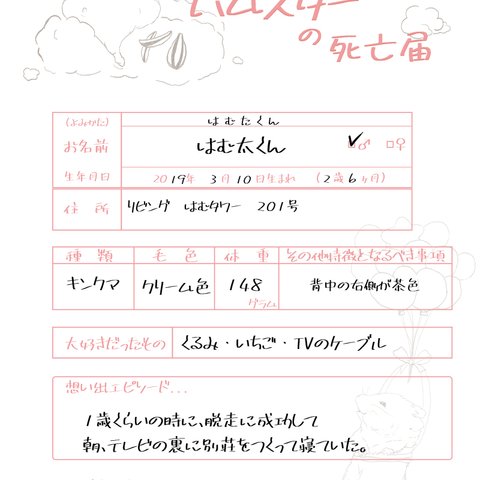 ハムスター
の死亡届
(ふりがな) はむたくん
お名前 はむ太くん ✓□♂ □♀
生年月日 2019年 3月10日生まれ (2歳6ヶ月)
住所 リビング はむタワー 201号
種類 毛色 体重 その他特徴となるべき事項
キンクマ クリーム色 148グラム 背中の右側が茶色
大好きだったもの くるみ・いちご・TVのケーブル
想い出エピソード...
1歳くらいの時に、脱走に成功して
朝、テレビの裏に別荘をつくって寝ていた。